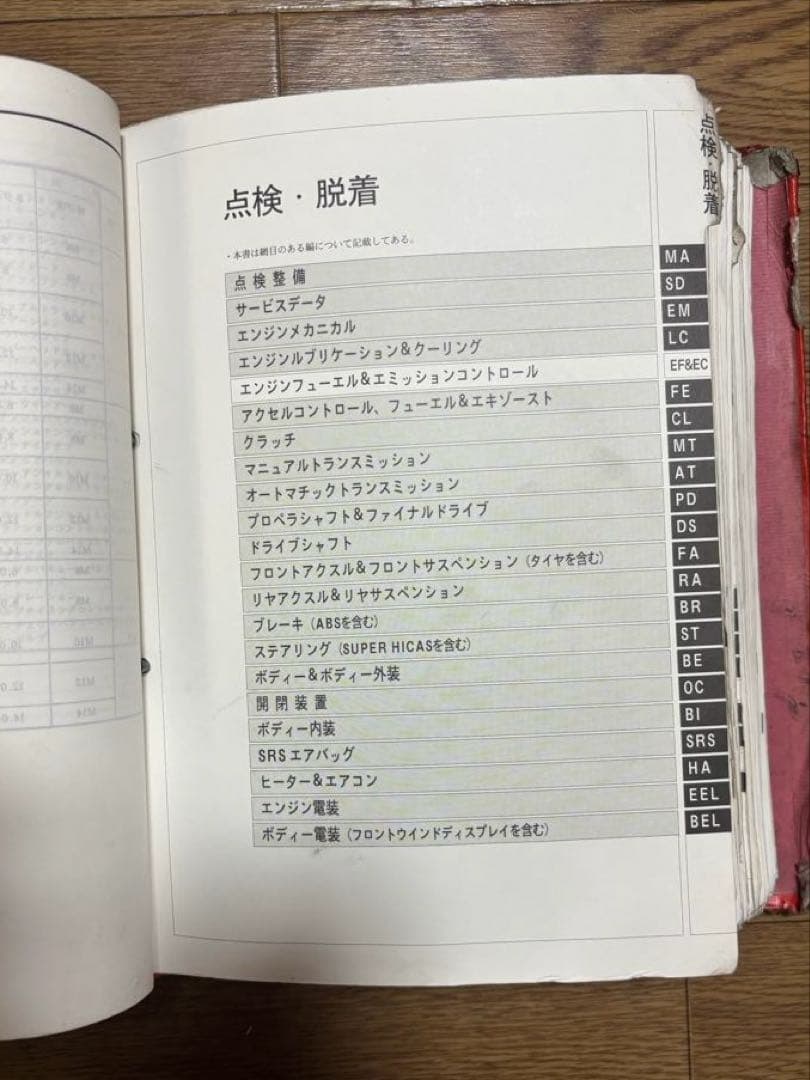 点検・脱着
点検・脱着
・本書は網目のある編について記載してある。
点検整備 MA
サービスデータ SD
エンジンメカニカル EM
エンジンルブリケーション&クーリング LC
エンジンフューエル&エミッションコントロール EF&EC
アクセルコントロール、フューエル&エキゾースト FE
クラッチ CL
マニュアルトランスミッション MT
オートマチックトランスミッション AT
プロペラシャフト&ファイナルドライブ PD
ドライブシャフト DS
フロントアクスル&フロントサスペンション(タイヤを含む) FA
リヤアクスル&リヤサスペンション RA
ブレーキ(ABSを含む) BR
ステアリング(SUPER HICASを含む) ST
ボディー&ボディー外装 BE
開閉装置 OC
ボディー内装 BI
SRSエアバッグ SRS
ヒーター&エアコン HA
エンジン電装 EEL
ボディー電装(フロントウインドディスプレイを含む) BEL